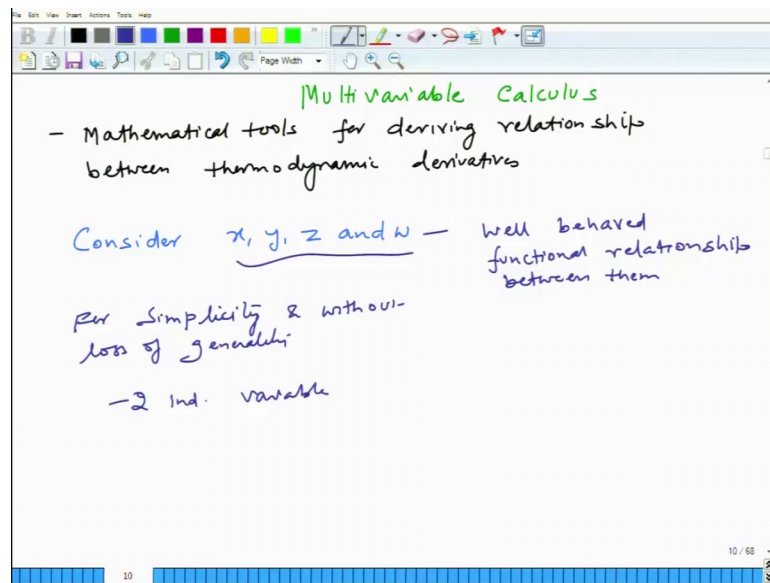 File Edit View Insert Actions Tools Help
B I
Page Width
Multivariable Calculus
- Mathematical tools for deriving relationship
between thermodynamic derivatives
Consider x, y, z and w — well behaved
functional relationship
between them
For simplicity & without
loss of generality
-2 ind. variable
10 / 68
10